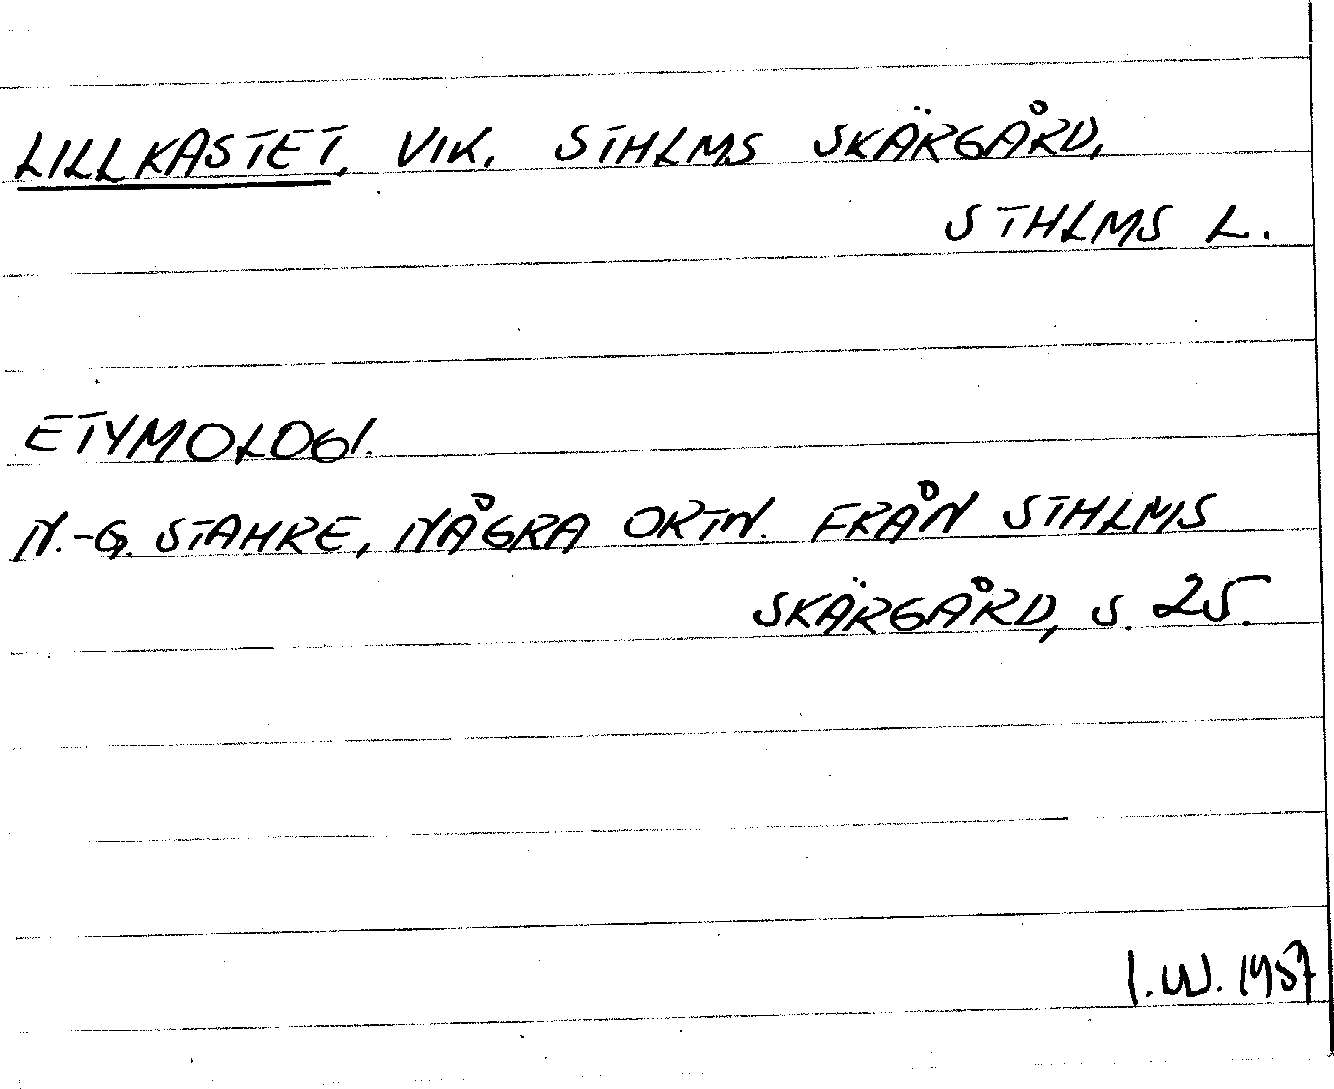 LILLKASTET, VIK, STHLMS SKÄRGÅRD,
STHLMS L.
ETYMOLOGI.
N.-G. STAHRE, NÅGRA ORTN. FRÅN STHLMS
SKÄRGÅRD, S. 25.
I.W. 1957